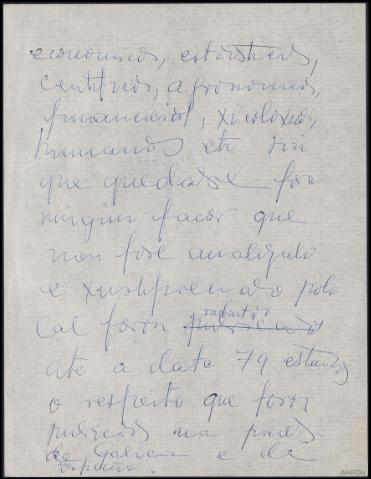 economicos, estatísticos,
centificos, agronomicos,
financieiros, xeoloxicos,
humanos etc sin
que quedase fora
ningun factor que
non fose analigado
e xustipreciado polo
cal foron publicado redactados
ate a data 79 estudios
o respeito que foron
publicados na prensa
de Galicia e de
España.
AHPOu